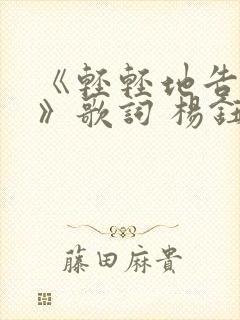 《輕輕地告
》歌詞 楊鈺
藤田麻貴